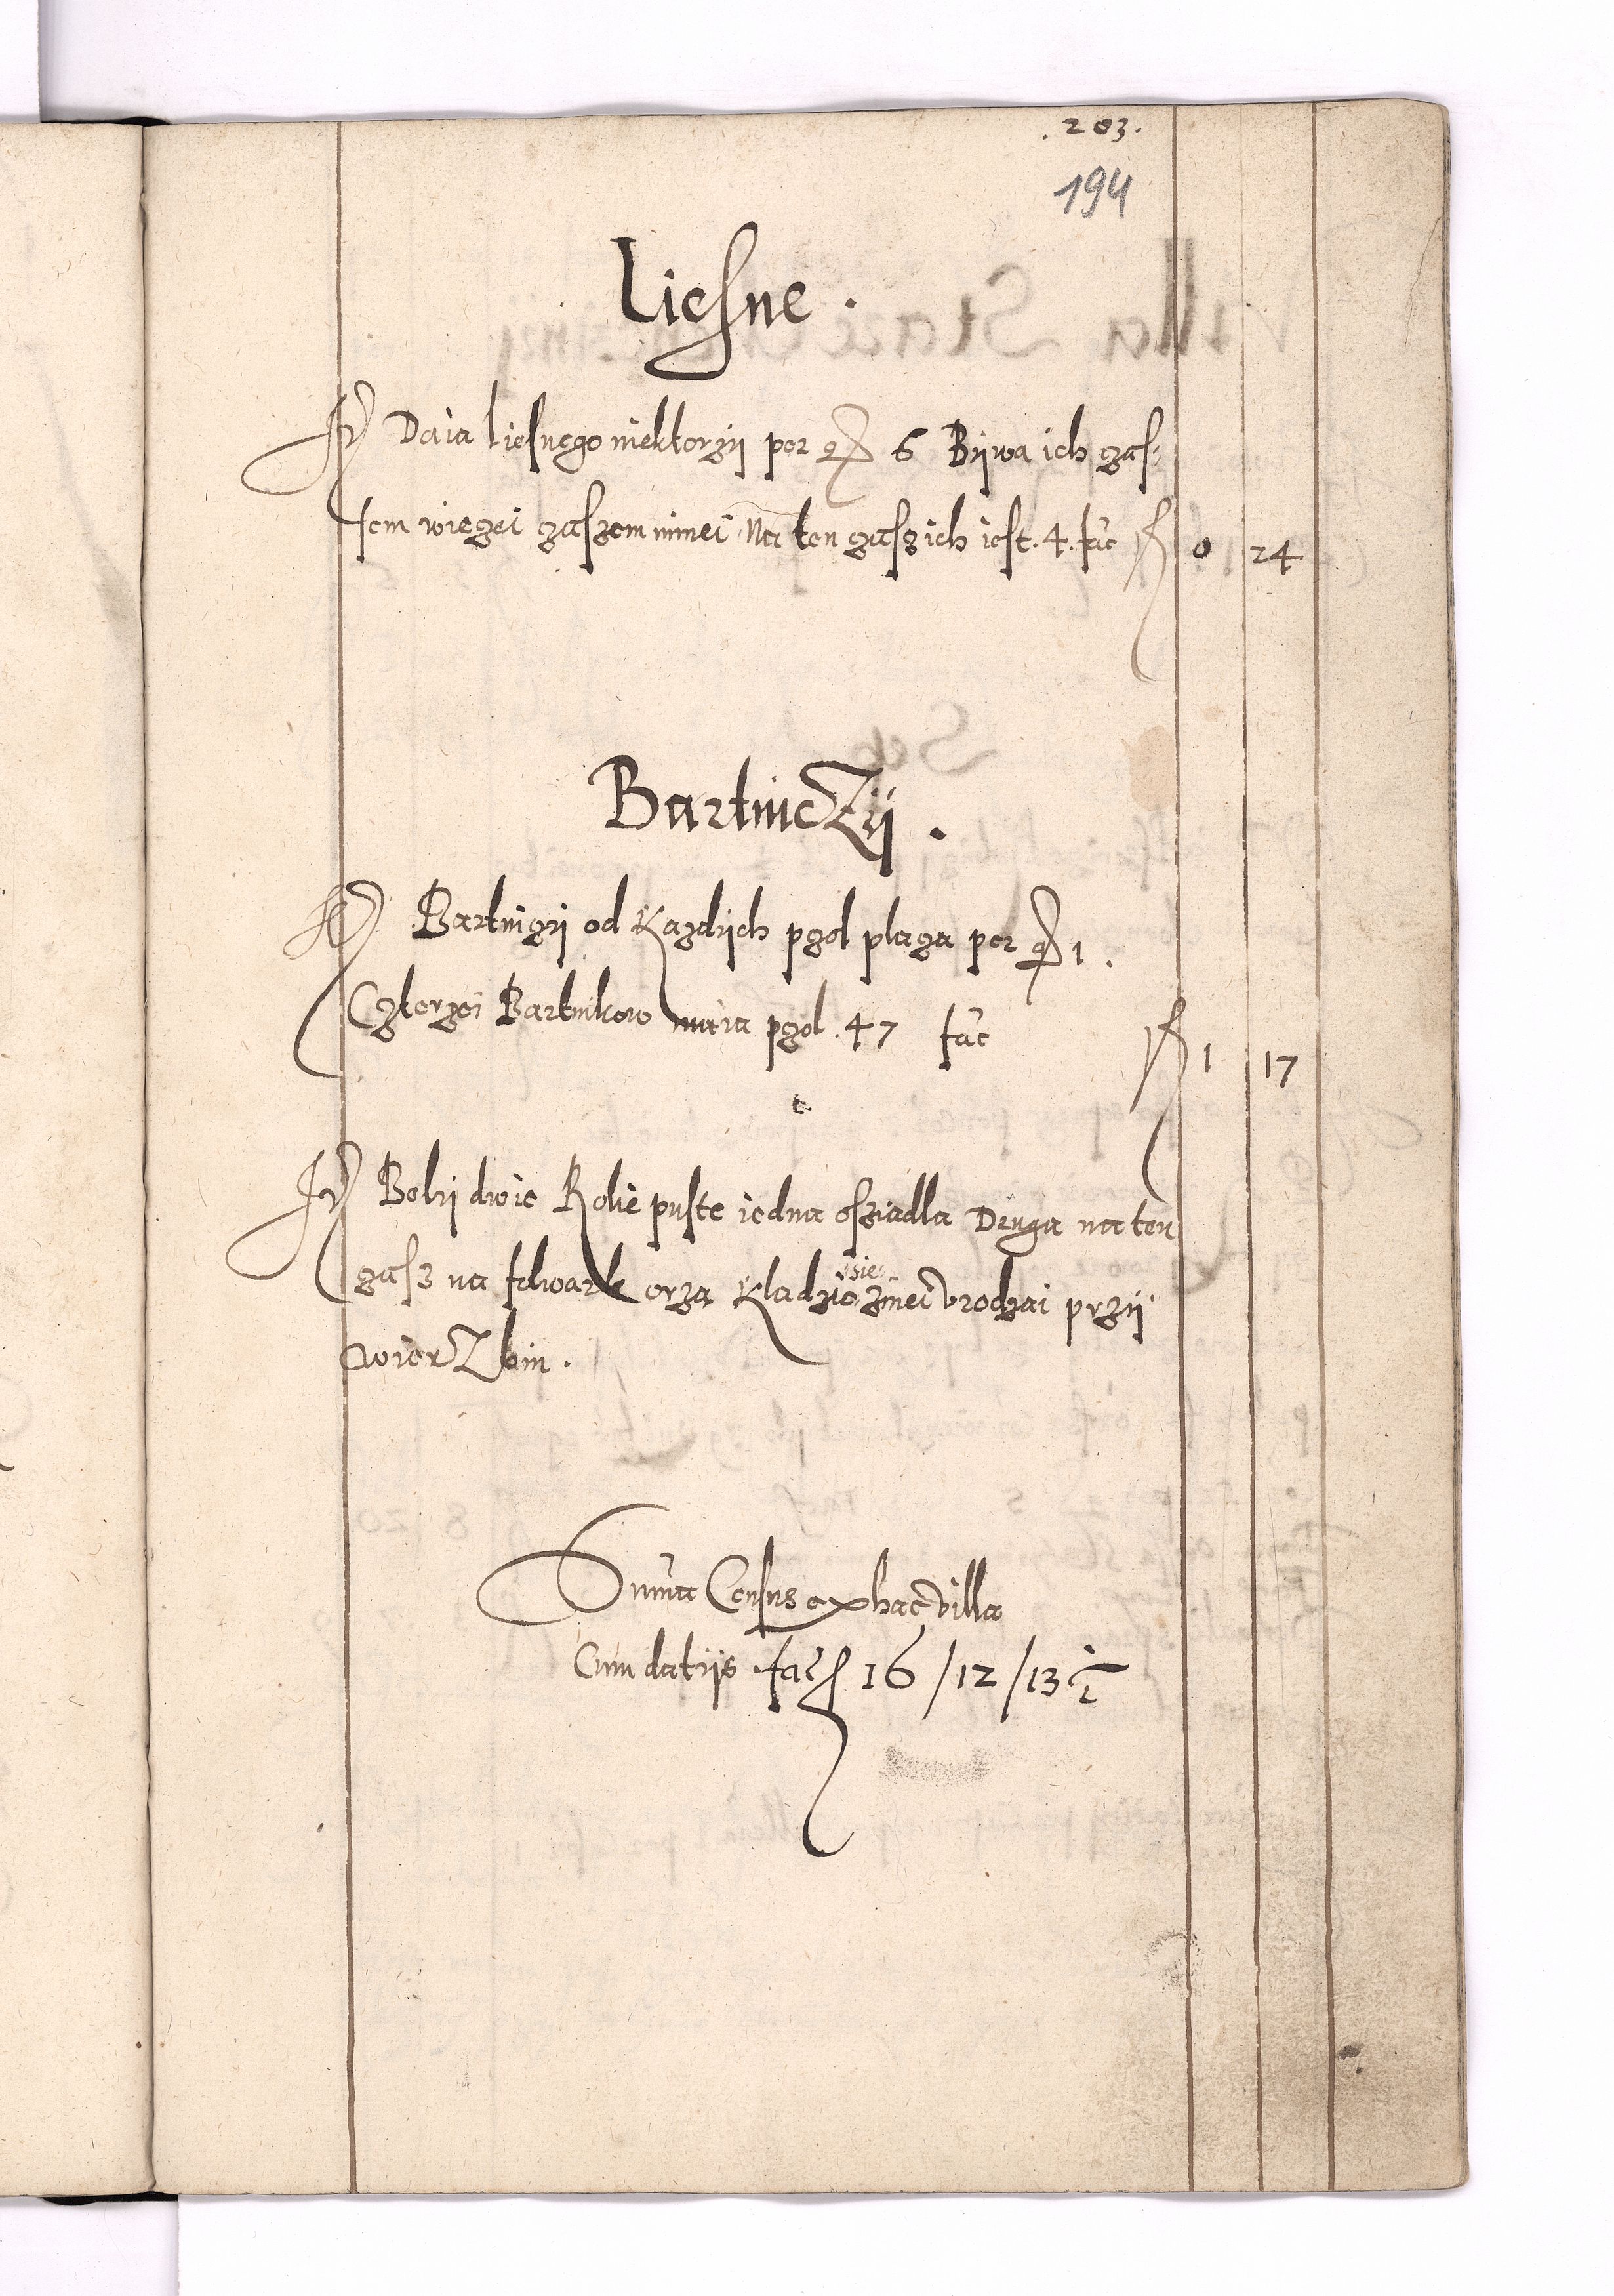 . 203.
194
Liesne.
It Daia liesnego niektorzÿ per gr 6 Bÿwa ich czas:
sem wieczei czaszem mnei Na ten czasz ich iest . 4 . fac fl 0 24
BartniczZÿ.
It Bartniczÿ od Kazdÿch pzol placza per gr 1 .
Czterzei Bartnikow maia pzol . 47 fac fl 1 17
It Belÿ dwie Rolie puste iedna osziadla Druga na ten
czasz na folwark orza Kladzie sie zmei Vrodzai przÿ
WierZbin .
Suma Census ex hac villa
Cum datÿs . fac 16 / 12 / 13 ½